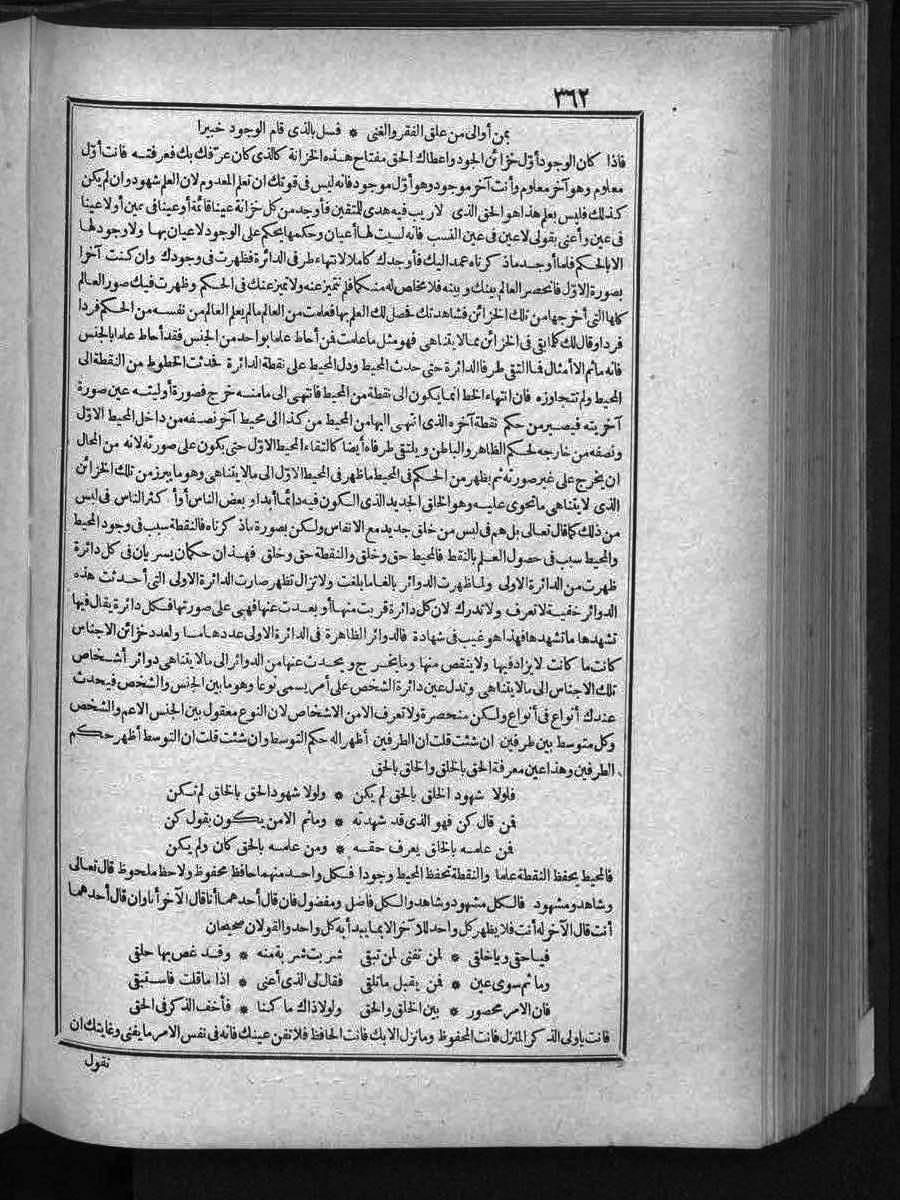 ٣٦٢
بمن أوالى من علق الفقر والغنى * فسل بالذى قام الوجود خبيرا
فاذا كان الوجود أوّل خزائن الجود واعطاك الحق مفتاح هذه الخزانة كالذى كان عرّفك بك فعرفته فانت أوّل
معلوم وهو آخر معلوم وأنت آخر موجود وهو أوّل موجود فانه ليس فى قوتك ان تعلم المعدوم لان العلم شهود وان لم يكن
كذلك فليس بعلم هذا هو الحق الذى لا ريب فيه هدى للمتقين فأوجد من كل خزانة عينا قائمة أو عينا فى عين أو لا عينا
فى عين وأعنى بقولى لا عين فى عين النسب فانه ليست لها أعيان وحكمها يحكم على الوجود لا عيان بها ولا وجود لها
الا بالحكم فلما أوجد ما ذكرناه عمد اليك فأوجدك كاملا لانتهاء طرفى الدائرة فظهرت فى وجودك وان كنت آخرا
بصورة الاوّل فانحصر العالم بينك وبينه فلا مخلص له منكما فلم تتميز عنه ولا تميز عنك فى الحكم وظهرت فيك صور العالم
كلها التى أخرجها من تلك الخزائن فشاهدتك فحصل لك العلم بها فعلمت من العالم ما لم يعلم العالم من نفسه من الحكم فردا
فردا وقال لك كلما بقى فى الخزائن مما لا يتناهى فهو مثل ما علمت فمن أحاط علما بواحد من الجنس فقد أحاط علما بالجنس
فانه ما ثم الا أمثال فما التقى طرفا الدائرة حتى حدث المحيط ودل المحيط على نقطة الدائرة فحدثت الخطوط من النقطة الى
المحيط ولم تتجاوزه فان انتهاء الخط انما يكون الى نقطة من المحيط فانتهى الى ما منه خرج فصورة أوليته عين صورة
آخريته فيصير من حكم نقطة آخره الذى انتهى اليها من المحيط من كذا الى محيط آخر نصفه من داخل المحيط الاوّل
ونصفه من خارجه لحكم الظاهر والباطن ويلتقى طرفاه أيضا كالتقاء المحيط الاوّل حتى يكون على صورته لانه من المحال
ان يخرج على غير صورته ثم يظهر من الحكم فى المحيط ما ظهر فى المحيط الاوّل الى ما لا يتناهى وهو ما يبرز من تلك الخزائن
الذى لا يتناهى ما تحوى عليه وهو الخلق الجديد الذى الكون فيه دائما أبدا وبعض الناس أو أكثر الناس فى لبس
من ذلك كما قال تعالى بل هم فى لبس من خلق جديد مع الانفاس ولكن بصورة ما ذكرناه فالنقطة سبب فى وجود المحيط
والمحيط سبب فى حصول العلم بالنقط فالمحيط حق وخلق والنقطة حق وخلق فهذان حكمان يسريان فى كل دائرة
ظهرت من الدائرة الاولى ولما ظهرت الدوائر بالغا ما بلغت ولا تزال تظهر صارت الدائرة الاولى التى أحدثت هذه
الدوائر خفية لا تعرف ولا تدرك لان كل دائرة قربت منها أو بعدت عنها فهى على صورتها فكل دائرة يقال فيها
تشهدها ما تشهدها فهذا هو غيب فى شهادة فالدوائر الظاهرة فى الدائرة الاولى عددها مساو لعدد خزائن الاجناس
كانت ما كانت لا يزاد فيها ولا ينقص منها وما يخرج ويحدث عنها من الدوائر الى ما لا يتناهى دوائر أشخاص
تلك الاجناس الى ما لا يتناهى وتدل عين دائرة الشخص على أمر يسمى نوعا وهو ما بين الجنس والشخص فيحدث
عندك أنواع فى أنواع ولكن منحصرة ولا تعرف الا من الاشخاص لان النوع معقول بين الجنس الاعم والشخص
وكل متوسط بين طرفين ان شئت قلت ان الطرفين أظهرا له حكم التوسط وان شئت قلت ان التوسط أظهر حكم
الطرفين وهذا عين معرفة الحق بالخلق والخلق بالحق
فلولا شهود الخلق بالحق لم يكن * ولولا شهود الحق بالخلق لم تكن
فمن قال كن فهو الذى قد شهدته * وما ثم الا من يكون بقول كن
فمن علمه بالخلق يعرف حقه * ومن علمه بالحق كان ولم يكن
فالمحيط يحفظ النقطة علما والنقطة تحفظ المحيط وجودا فكل واحد منهما حافظ محفوظ ولاحظ ملحوظ قال تعالى
وشاهد ومشهود فالكل مشهود وشاهد والكل فاضل ومفضول فان قال أحدهما أنا قال الآخر أنا وان قال أحدهما
أنت قال الآخر له أنت فلا يظهر كل واحد للآخر الا بما يبدأ به كل واحد والقولان صحيحان
فيا حقى ويا خلقى * لمن تفنى لمن تبقى شربت شربة منه * وقد غص بها حلقى
وما ثم سوى عين * فمن يقبل ما تلقى فقال لى الذى أعنى * اذا ما قلت فاستبقى
فان الامر محصور * بين الخلق والحق ولولا ذاك ما كنا * فأخف الذكر فى الحق
فانت يا ولى الذكر المنزل فانت المحفوظ وما نزل الا بك فانت الحافظ فلا تفن عينك فانه فى نفس الامر ما يفنى وغايتك ان
تقول